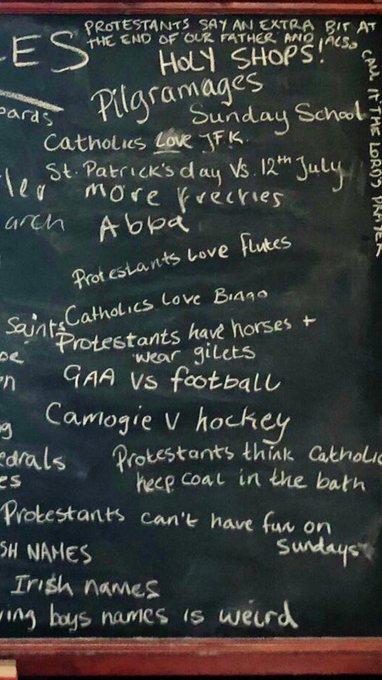 PROTESTANTS SAY AN EXTRA BIT AT
THE END OF OUR FATHER AND ALSO
CALL IT THE LORD'S PRAYER
ES
HOLY SHOPS!
Pilgramages
oards
Sunday School
Catholics Love JFK.
St. Patrick's day Vs. 12th July
more freckles
arch
Abba
Protestants Love flutes
Catholics Love Bingo
Saints
Protestants have horses +
wear gilets
GAA Vs football
Camogie V hockey
edrals
Protestants think Catholic
es
keep coal in the bath
Protestants can't have fun on
Sundays
SH NAMES
Irish names
ving boys names is weird